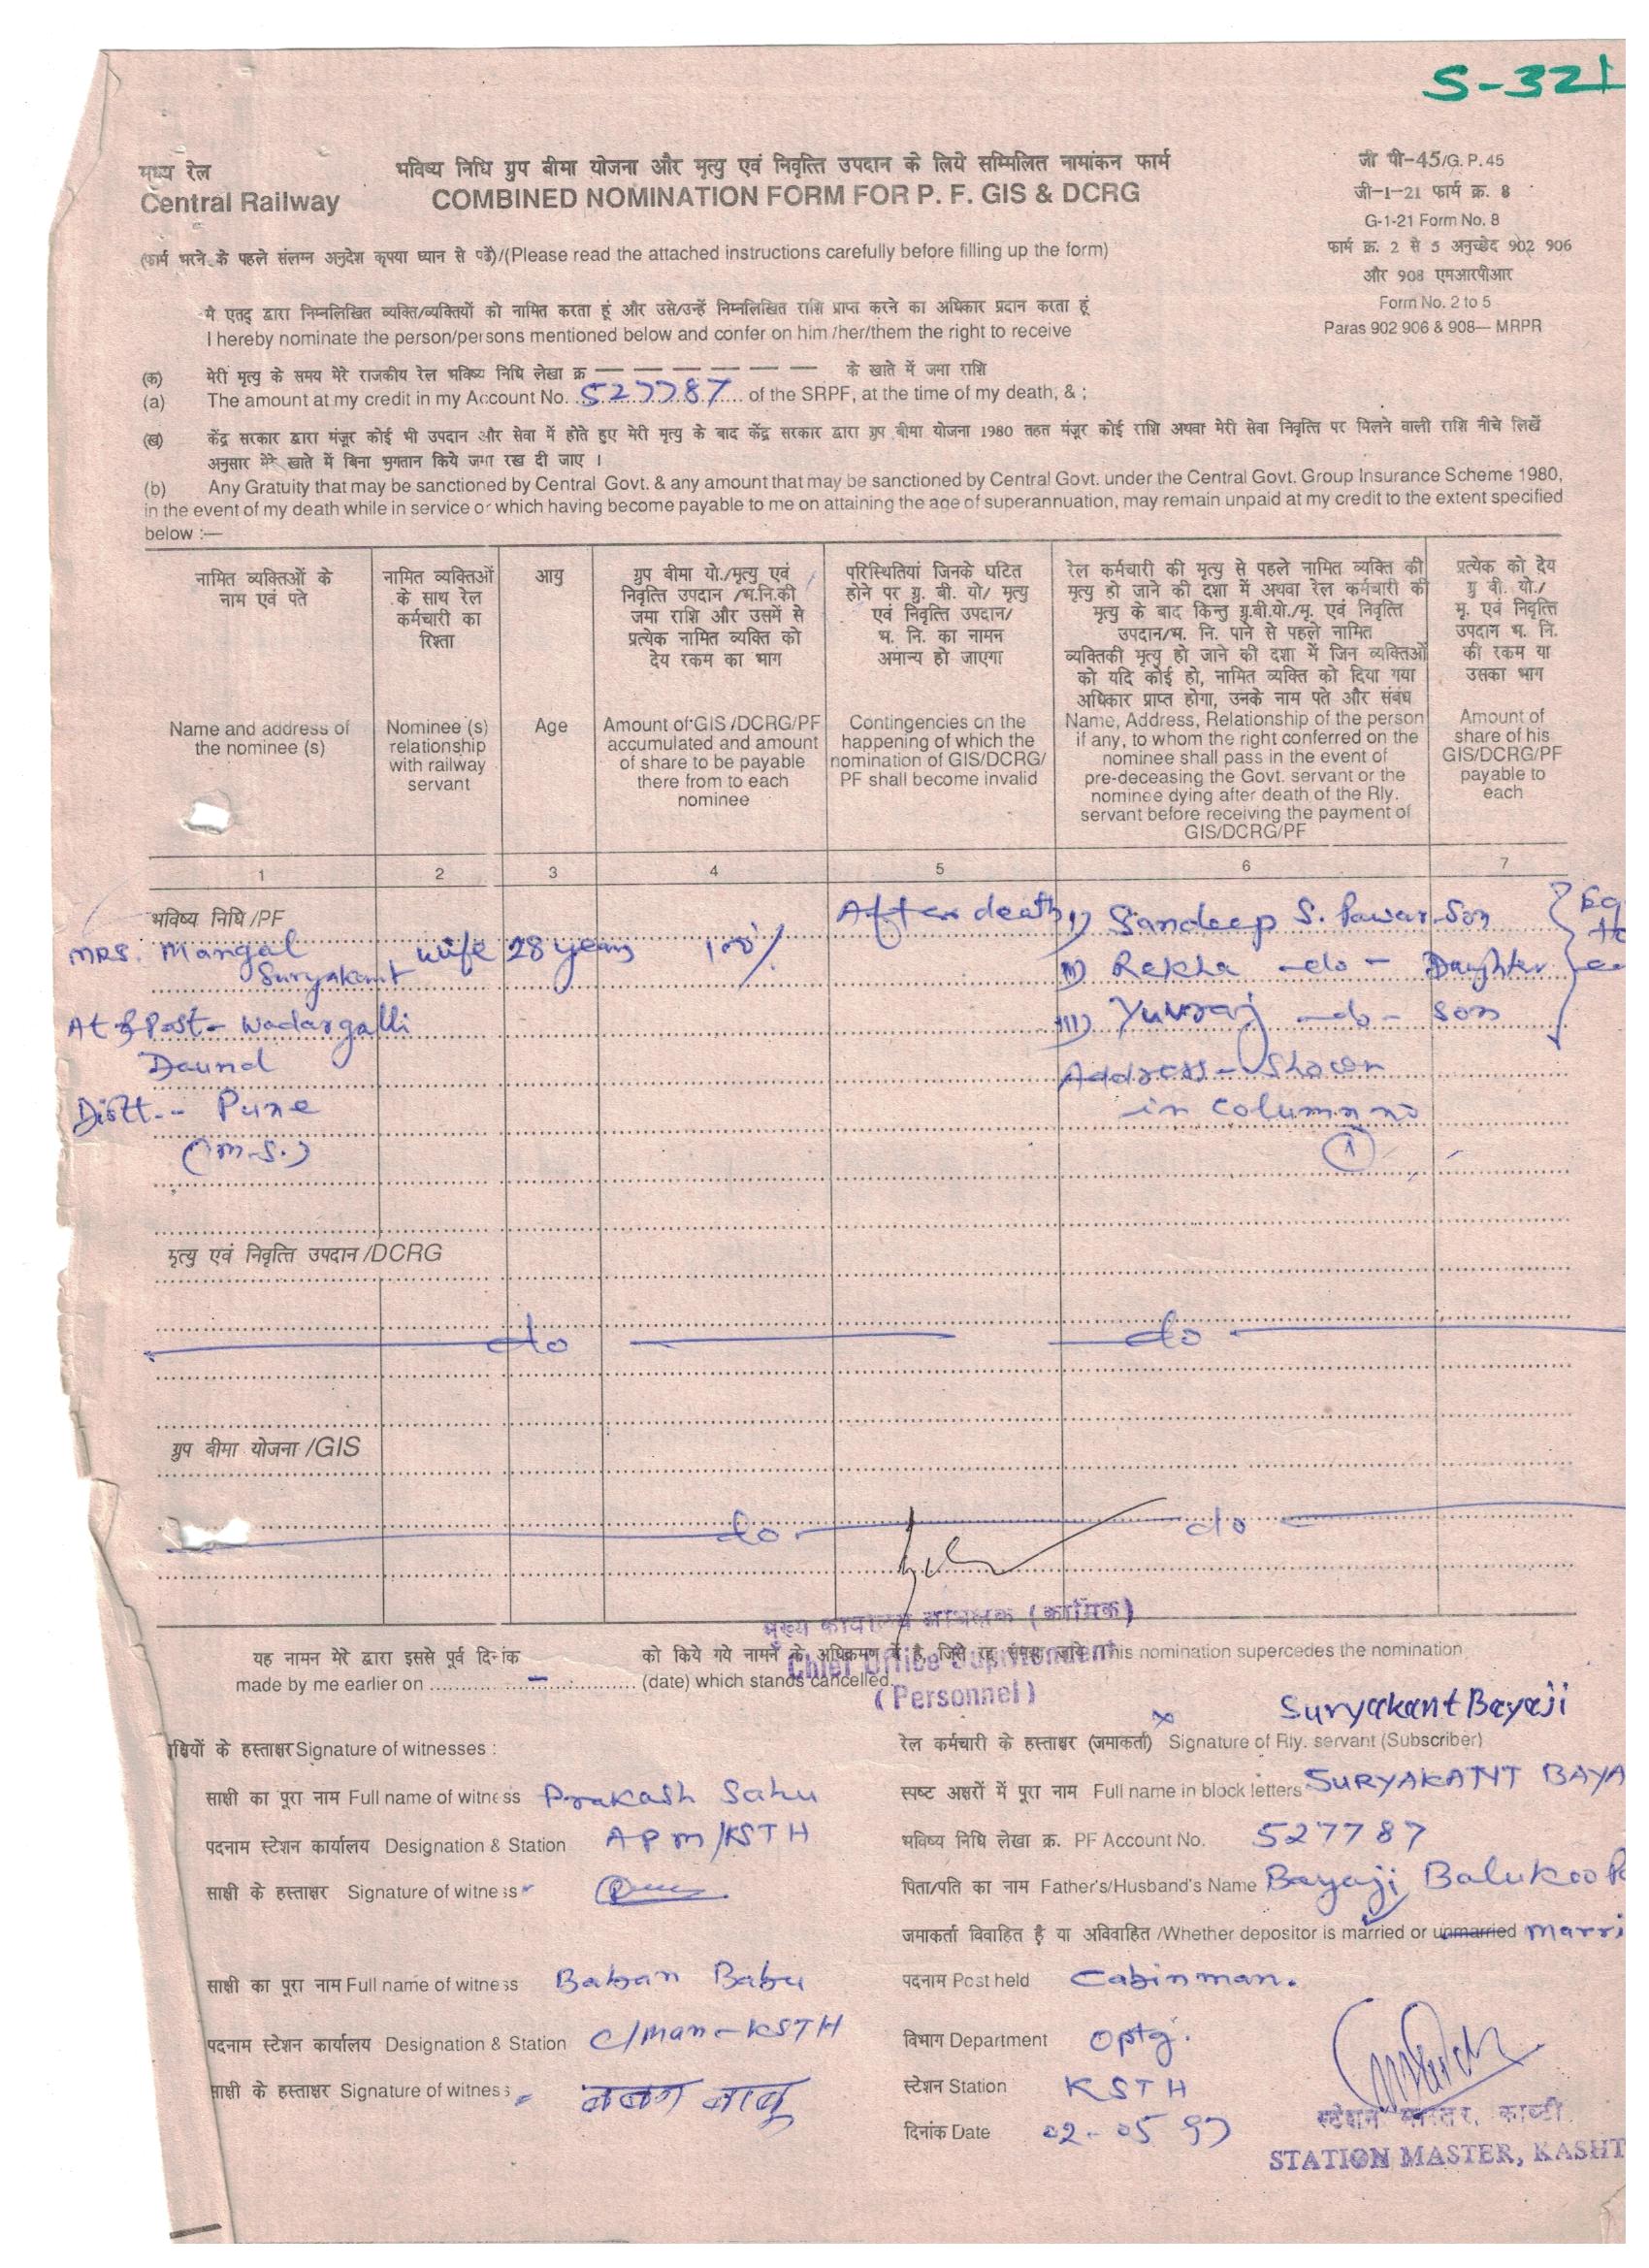 S-321
मध्य रेल
Central Railway
भविष्य निधि ग्रुप बीमा योजना और मृत्यु एवं निवृत्ति उपदान के लिये सम्मिलित नामांकन फार्म
COMBINED NOMINATION FORM FOR P. F. GIS & DCRG
जी पी-45/G. P. 45
जी-1-21 फार्म क्र. 8
G-1-21 Form No. 8
फार्म क्र. 2 से 5 अनुच्छेद 902 906
और 908 एमआरपीआर
Form No. 2 to 5
Paras 902 906 & 908— MRPR
(फार्म भरने के पहले संलग्न अनुदेश कृपया ध्यान से पढें)/(Please read the attached instructions carefully before filling up the form)
मै एतद् द्वारा निम्नलिखित व्यक्ति/व्यक्तियों को नामित करता हूं और उसे/उन्हें निम्नलिखित राशि प्राप्त करने का अधिकार प्रदान करता हूं
I hereby nominate the person/persons mentioned below and confer on him /her/them the right to receive
(क) मेरी मृत्यु के समय मेरे राजकीय रेल भविष्य निधि लेखा क्र — — — — — — — के खाते में जमा राशि
(a) The amount at my credit in my Account No. 527787 of the SRPF, at the time of my death, & ;
(ख) केंद्र सरकार द्वारा मंजूर कोई भी उपदान और सेवा में होते हुए मेरी मृत्यु के बाद केंद्र सरकार द्वारा ग्रुप बीमा योजना 1980 तहत मंजूर कोई राशि अथवा मेरी सेवा निवृत्ति पर मिलने वाली राशि नीचे लिखें
अनुसार मेरे खाते में बिना भुगतान किये जमा रख दी जाए ।
(b) Any Gratuity that may be sanctioned by Central Govt. & any amount that may be sanctioned by Central Govt. under the Central Govt. Group Insurance Scheme 1980,
in the event of my death while in service or which having become payable to me on attaining the age of superannuation, may remain unpaid at my credit to the extent specified
below :—
नामित व्यक्तिओं के
नाम एवं पते
Name and address of
the nominee (s)
नामित व्यक्तिओं
के साथ रेल
कर्मचारी का
रिश्ता
Nominee (s)
relationship
with railway
servant
आयु
Age
ग्रुप बीमा यो./मृत्यु एवं
निवृत्ति उपदान /भ.नि.की
जमा राशि और उसमें से
प्रत्येक नामित व्यक्ति को
देय रकम का भाग
Amount of GIS /DCRG/PF
accumulated and amount
of share to be payable
there from to each
nominee
परिस्थितियां जिनके घटित
होने पर ग्रु. बी. यो/ मृत्यु
एवं निवृत्ति उपदान/
भ. नि. का नामन
अमान्य हो जाएगा
Contingencies on the
happening of which the
nomination of GIS/DCRG/
PF shall become invalid
रेल कर्मचारी की मृत्यु से पहले नामित व्यक्ति की
मृत्यु हो जाने की दशा में अथवा रेल कर्मचारी की
मृत्यु के बाद किन्तु ग्रु.बी.यो./मृ. एवं निवृत्ति
उपदान/भ. नि. पाने से पहले नामित
व्यक्तिकी मृत्यु हो जाने की दशा में जिन व्यक्तिओं
को यदि कोई हो, नामित व्यक्ति को दिया गया
अधिकार प्राप्त होगा, उनके नाम पते और संबंध
Name, Address, Relationship of the person
if any, to whom the right conferred on the
nominee shall pass in the event of
pre-deceasing the Govt. servant or the
nominee dying after death of the Rly.
servant before receiving the payment of
GIS/DCRG/PF
प्रत्येक को देय
ग्रु बी. यो./
मृ. एवं निवृत्ति
उपदान भ. नि.
की रकम या
उसका भाग
Amount of
share of his
GIS/DCRG/PF
payable to
each
1 2 3 4 5 6 7
भविष्य निधि /PF
MRS. Mangal
Suryakant
At & Post- Wadargalli
Daund
Distt.-- Pune
(M.S.)
wife
28 years
100%
After death
i) Sandeep S. Pawar - Son
ii) Rekha -do- Daughter
iii) Yuvraj -do- Son
Address- Shown
in column no
1
मृत्यु एवं निवृत्ति उपदान /DCRG
do do
ग्रुप बीमा योजना /GIS
do do
मुख्य कार्यालय अधिक्षक (कार्मिक)
Chief Office Suprintendent
(Personnel)
यह नामन मेरे द्वारा इससे पूर्व दिनांक को किये गये नामनें के अधिक्रमण में है, जिसे रद्द समझा जाये This nomination supercedes the nomination
made by me earlier on - (date) which stands cancelled.
Suryakant Bayaji
रेल कर्मचारी के हस्ताक्षर (जमाकर्ता) Signature of Rly. servant (Subscriber)
स्पष्ट अक्षरों में पूरा नाम Full name in block letters SURYAKANT BAYA
भविष्य निधि लेखा क्र. PF Account No. 527787
पिता/पति का नाम Father's/Husband's Name Bayaji Balukoo
जमाकर्ता विवाहित है या अविवाहित /Whether depositor is married or unmarried Marri
पदनाम Post held Cabinman.
विभाग Department Optg.
स्टेशन Station KSTH
दिनांक Date 02-05 97
Signature of witnesses :
साक्षी का पूरा नाम Full name of witness Prakash Sahu
पदनाम स्टेशन कार्यालय Designation & Station APM/KSTH
साक्षी के हस्ताक्षर Signature of witness
साक्षी का पूरा नाम Full name of witness Baban Babu
पदनाम स्टेशन कार्यालय Designation & Station C/Man-KSTH
साक्षी के हस्ताक्षर Signature of witness बबन बाबू
स्टेशन मास्टर, काष्टी
STATION MASTER, KASHT